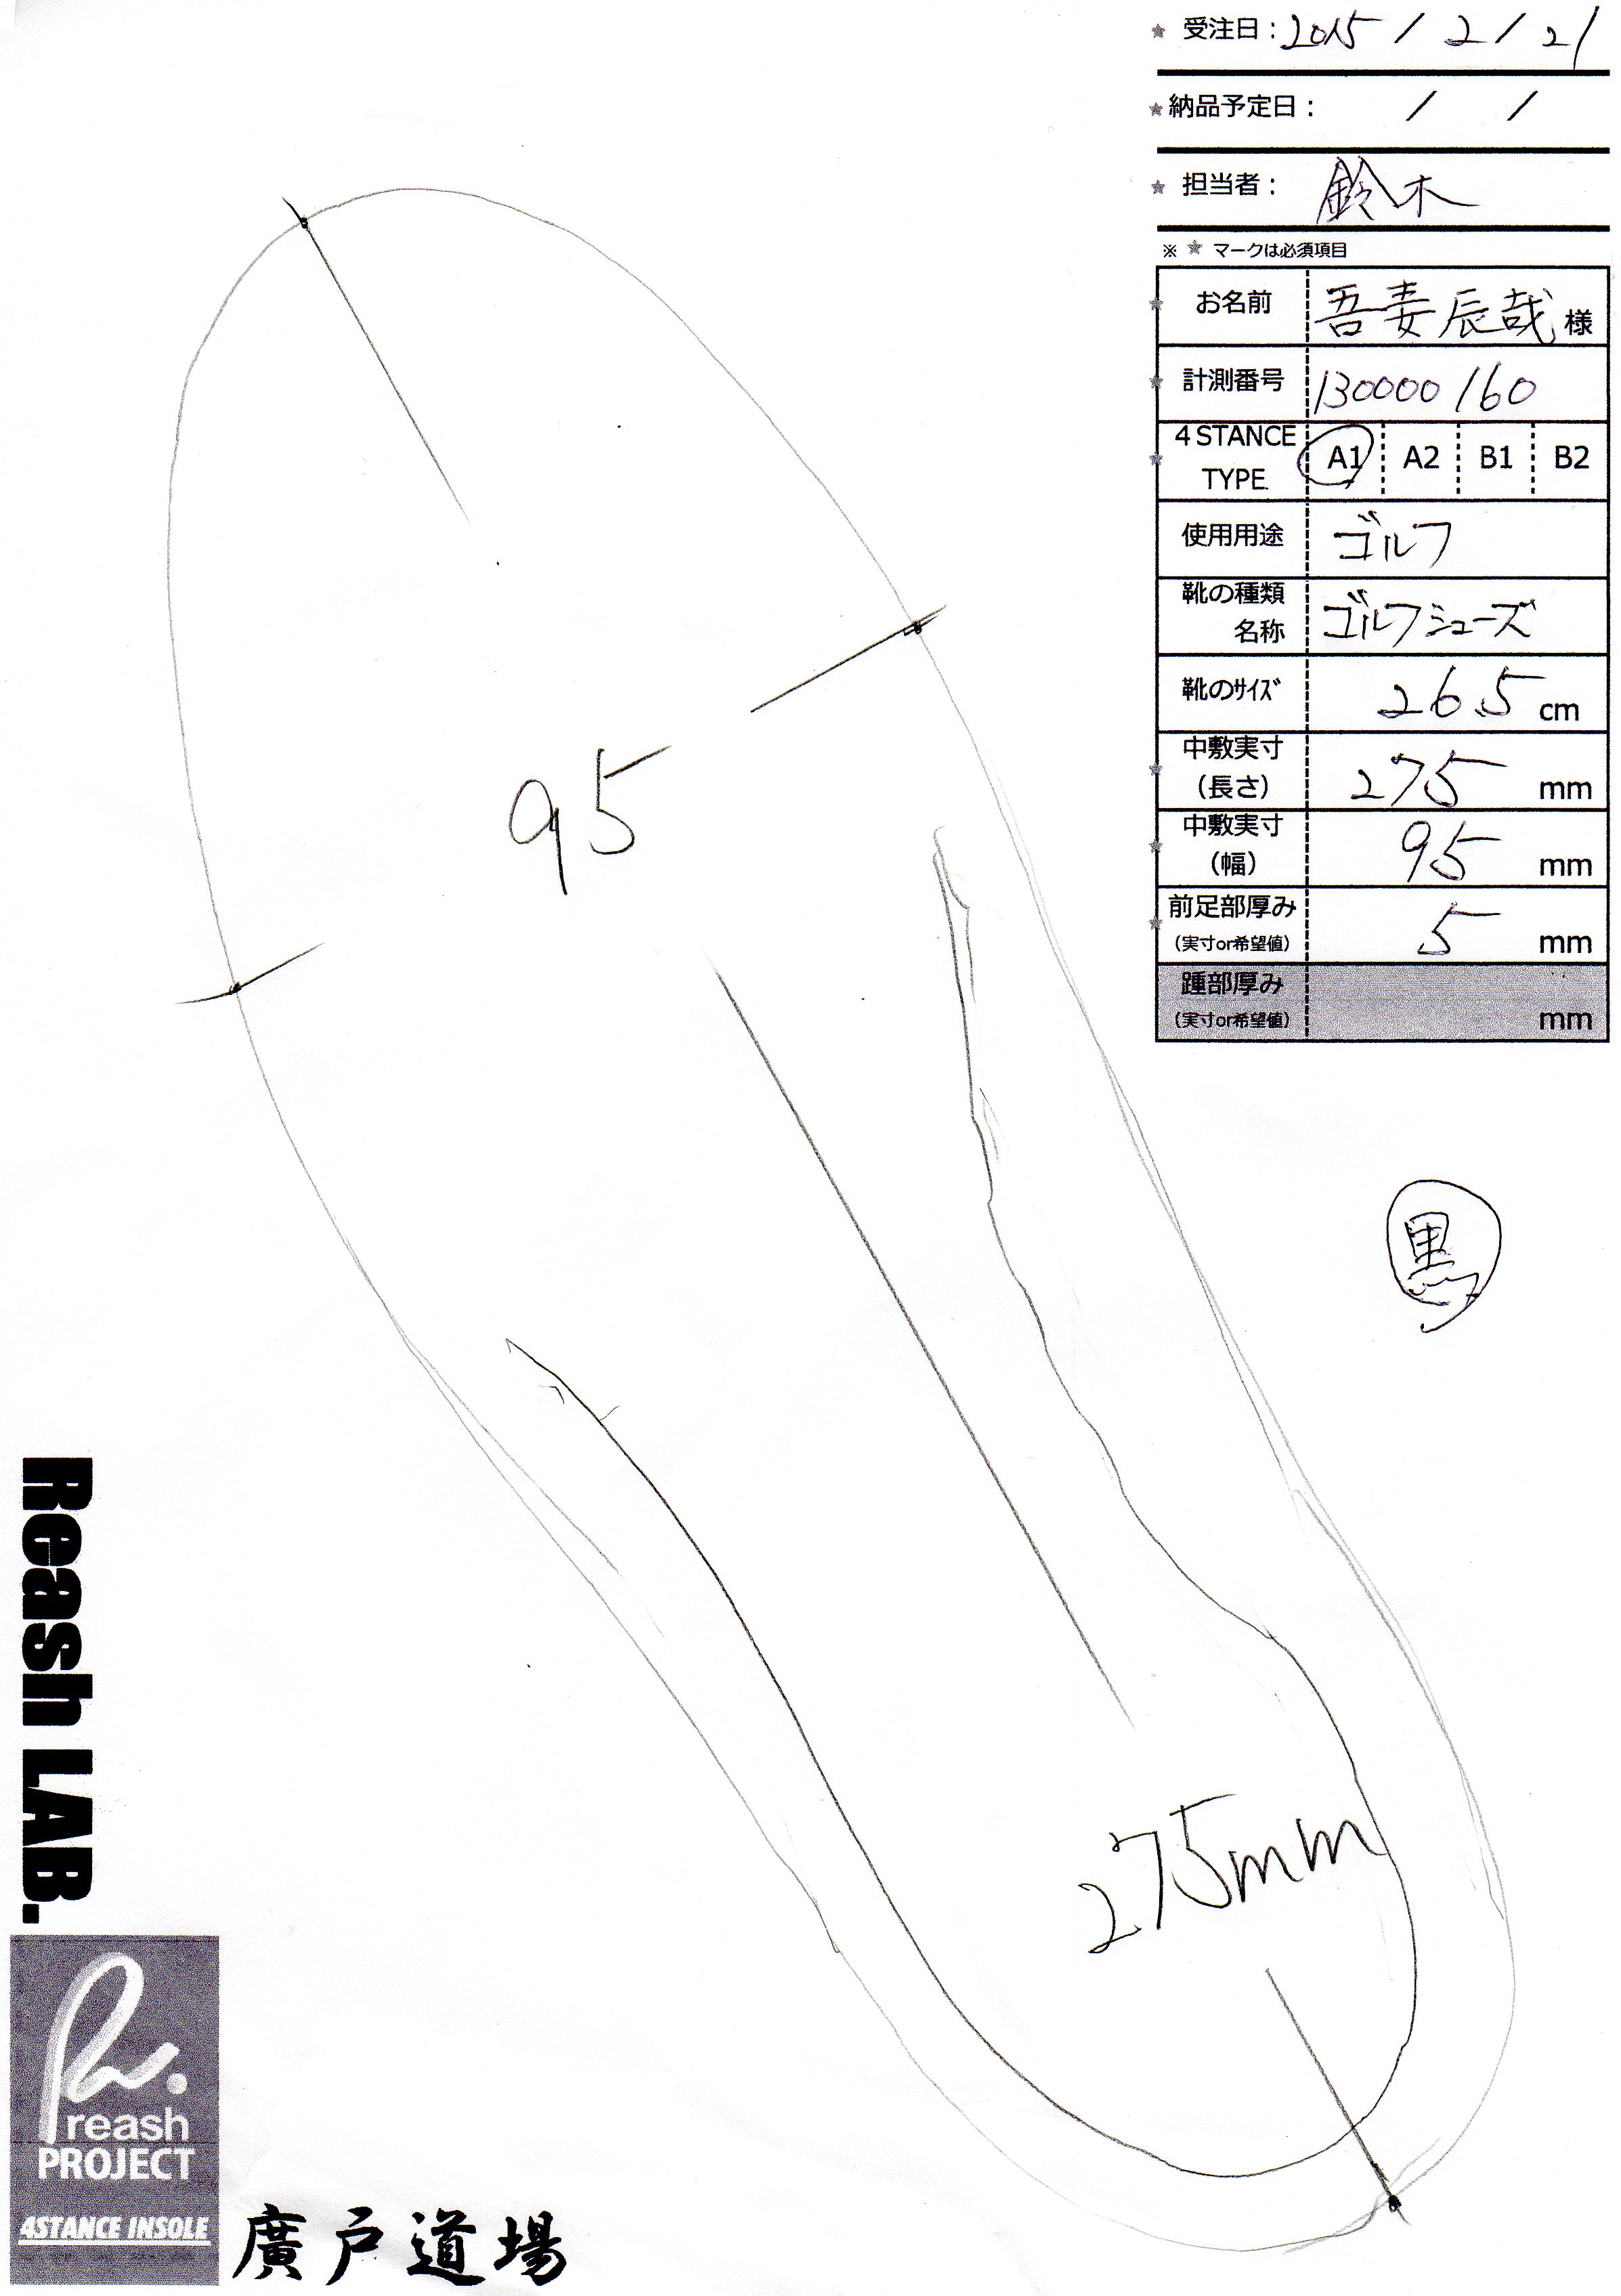 ★ 受注日：2015 / 2 / 21
★ 納品予定日： / /
★ 担当者： 鈴木
※ ★ マークは必須項目
★ お名前 吾妻辰哉 様
★ 計測番号 130000160
★ 4STANCE TYPE. A1 A2 B1 B2
使用用途 ゴルフ
靴の種類 名称 ゴルフシューズ
靴のサイズ 26.5 cm
★ 中敷実寸（長さ） 275 mm
★ 中敷実寸（幅） 95 mm
★ 前足部厚み（実寸or希望値） 5 mm
踵部厚み（実寸or希望値） mm
95
黒
275mm
Reash LAB.
reash
PROJECT
4STANCE INSOLE
廣戸道場